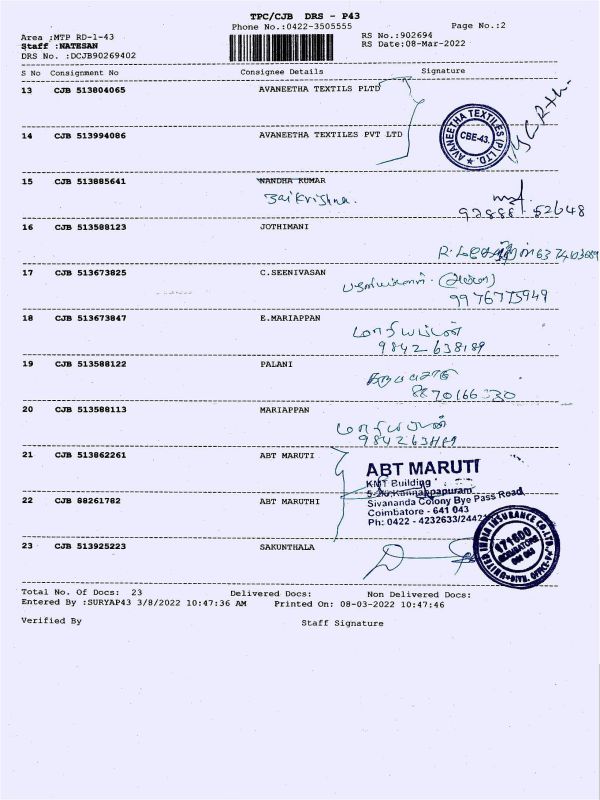 TPC/CJB DRS - P43
Phone No.:0422-3505555 Page No.:2
Area :MTP RD-1-43 RS No.:902694
Staff :NATESAN RS Date:08-Mar-2022
DRS No. :DCJB90269402
S No Consignment No Consignee Details Signature
13 CJB 513804065 AVANEETHA TEXTILS PLTD
14 CJB 513994086 AVANEETHA TEXTILES PVT LTD
AVANEETHA TEXTILES (P) LTD.
CBE-43.
15 CJB 513885641 NANDHA KUMAR
Saikrishna.
92888 52648
16 CJB 513588123 JOTHIMANI
17 CJB 513673825 C.SEENIVASAN
9976775949
18 CJB 513673847 E.MARIAPPAN
மாரியப்பன்
9842638189
19 CJB 513588122 PALANI
20 CJB 513588113 MARIAPPAN
மாரியப்பன்
21 CJB 513862261 ABT MARUTI
ABT MARUTI
KMT Building
22 CJB 88261782 ABT MARUTHI
Sivananda Colony Bye Pass Road
Coimbatore - 641 043
Ph: 0422 - 4232633/24421
23 CJB 513925223 SAKUNTHALA
UNITED INDIA INSURANCE CO LTD
171600
COIMBATORE
Total No. Of Docs: 23 Delivered Docs: Non Delivered Docs:
Entered By :SURYAP43 3/8/2022 10:47:36 AM Printed On: 08-03-2022 10:47:46
Verified By Staff Signature